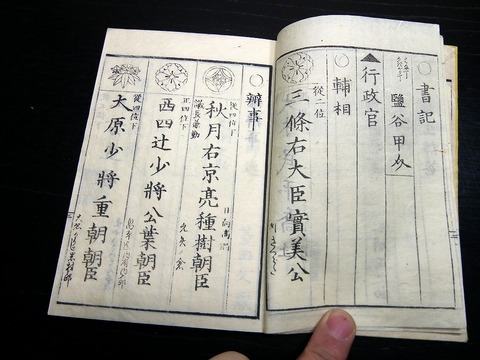 ○書記
鹽谷甲介
▲行政官
○輔相
從二位
三條右大臣實美公
○辨事
從四位下
議長兼勤
秋月右京亮種樹朝臣
日向高鍋
正四位下
西四辻少將公業朝臣
從四位下
大原少將重朝朝臣